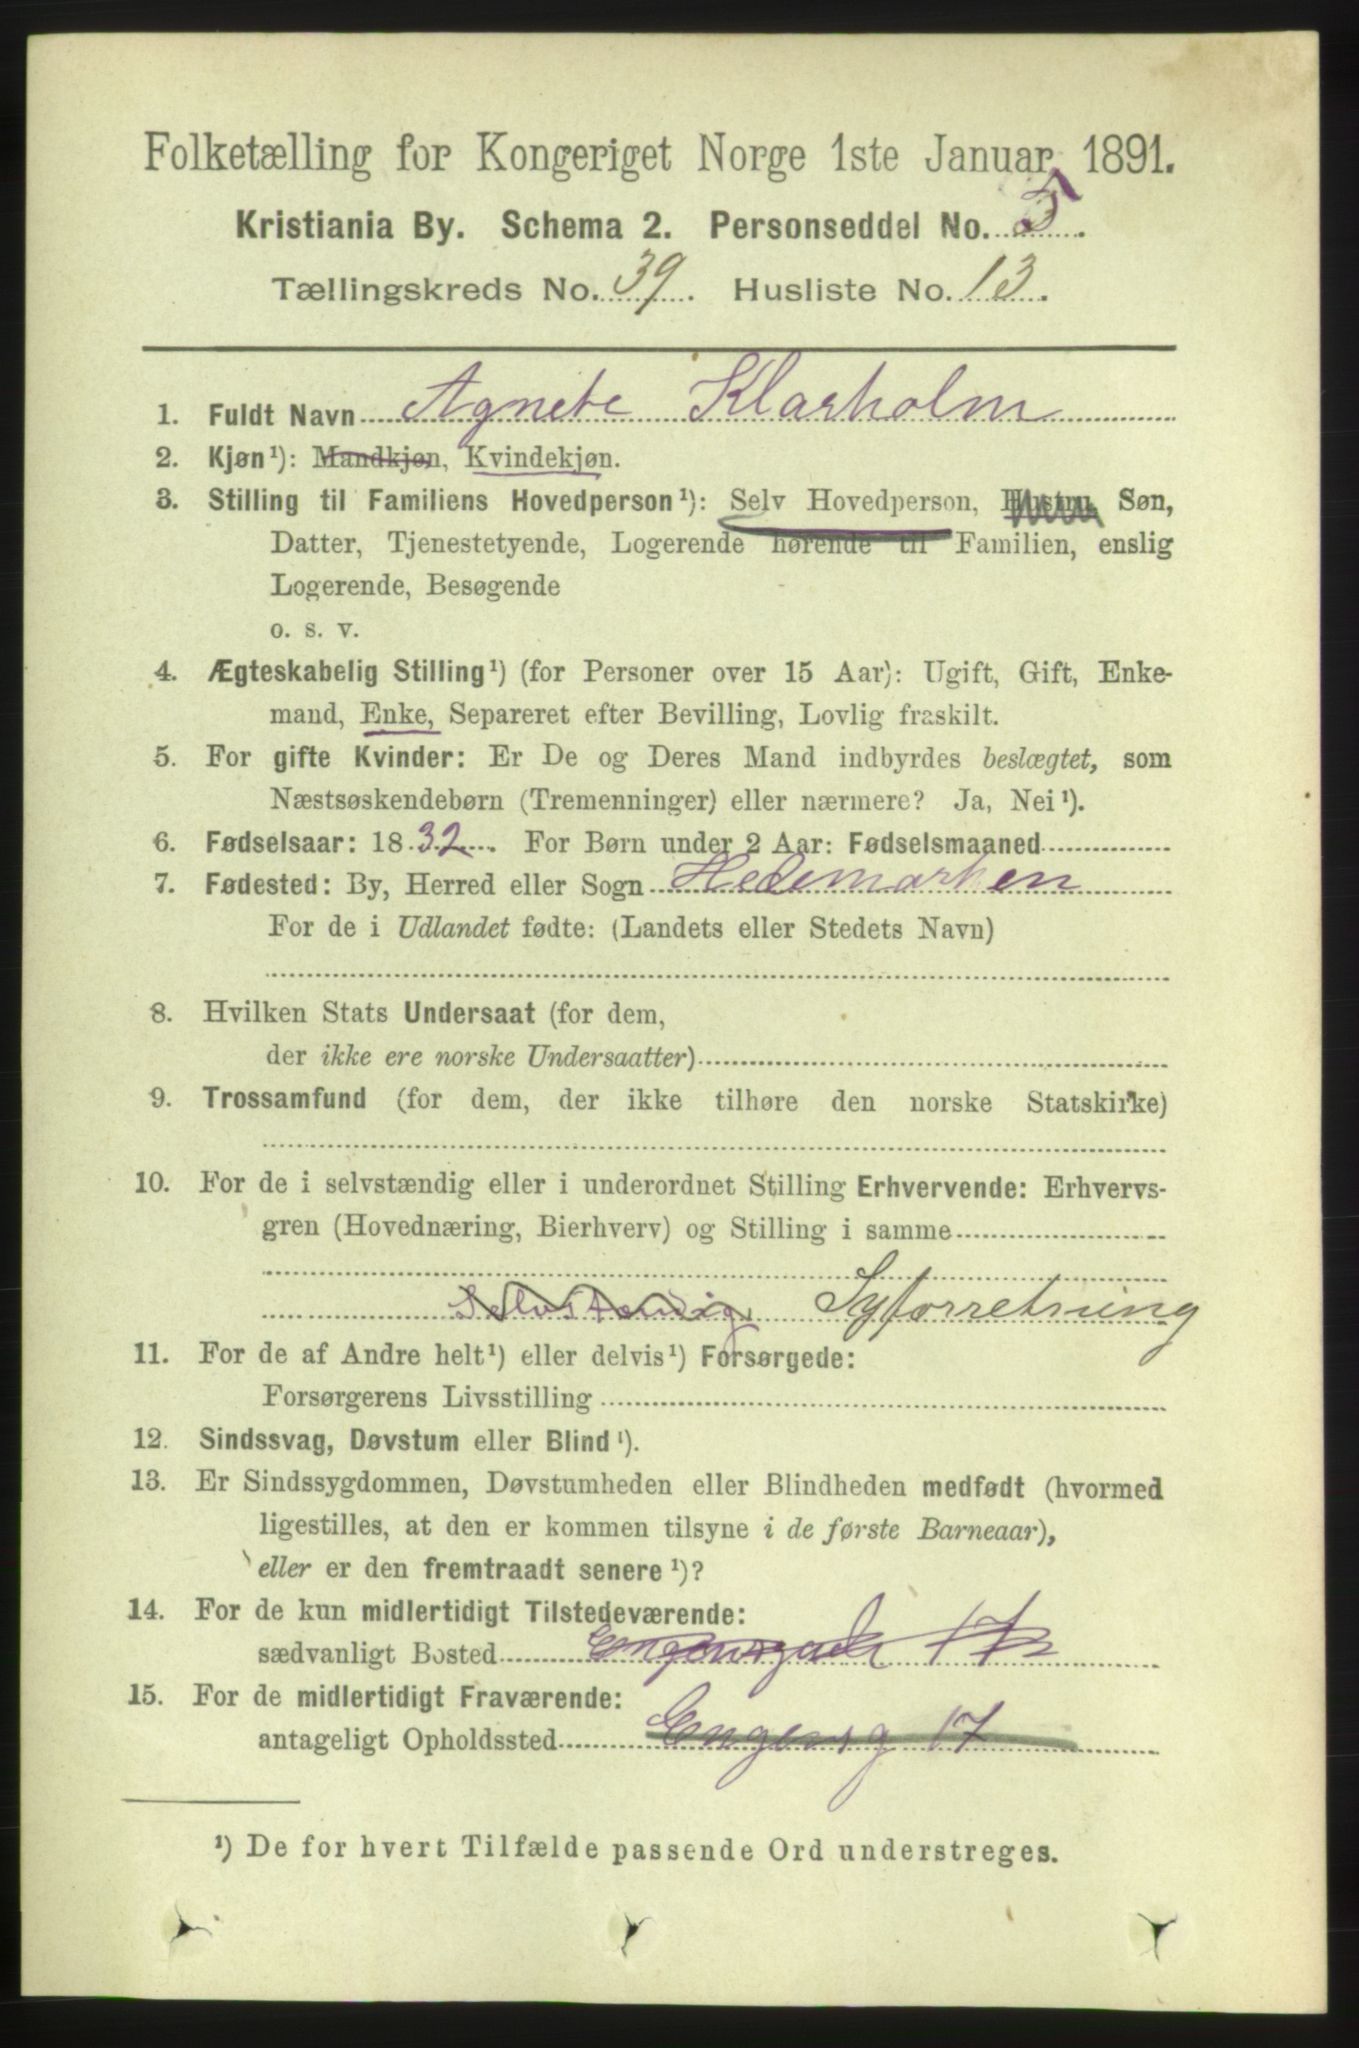 Folketælling for Kongeriget Norge 1ste Januar 1891.
Kristiania By. Schema 2. Personseddel No. 5.
Tællingskreds No. 39. Husliste No. 13.
1. Fuldt Navn Agnete Klarholm
2. Kjøn¹): Mandkjøn, Kvindekjøn.
3. Stilling til Familiens Hovedperson¹): Selv Hovedperson, Hustru, Søn,
Datter, Tjenestetyende, Logerende hørende til Familien, enslig
Logerende, Besøgende
o. s. v.
4. Ægteskabelig Stilling¹) (for Personer over 15 Aar): Ugift, Gift, Enke-
mand, Enke, Separeret efter Bevilling, Lovlig fraskilt.
5. For gifte Kvinder: Er De og Deres Mand indbyrdes beslægtet, som
Næstsøskendebørn (Tremenninger) eller nærmere? Ja, Nei¹).
6. Fødselsaar: 1832. For Børn under 2 Aar: Fødselsmaaned
7. Fødested: By, Herred eller Sogn Hedemarken
For de i Udlandet fødte: (Landets eller Stedets Navn)
8. Hvilken Stats Undersaat (for dem,
der ikke ere norske Undersaatter)
9. Trossamfund (for dem, der ikke tilhøre den norske Statskirke)
10. For de i selvstændig eller i underordnet Stilling Erhvervende: Erhvervs-
gren (Hovednæring, Bierhverv) og Stilling i samme
Selvstændig Syforretning
11. For de af Andre helt¹) eller delvis¹) Forsørgede:
Forsørgerens Livsstilling
12. Sindssvag, Døvstum eller Blind¹).
13. Er Sindssygdommen, Døvstumheden eller Blindheden medfødt (hvormed
ligestilles, at den er kommen tilsyne i de første Barneaar),
eller er den fremtraadt senere¹)?
14. For de kun midlertidigt Tilstedeværende:
sædvanligt Bosted Engensgade 17
15. For de midlertidigt Fraværende:
antageligt Opholdssted Engensg 17
¹) De for hvert Tilfælde passende Ord understreges.